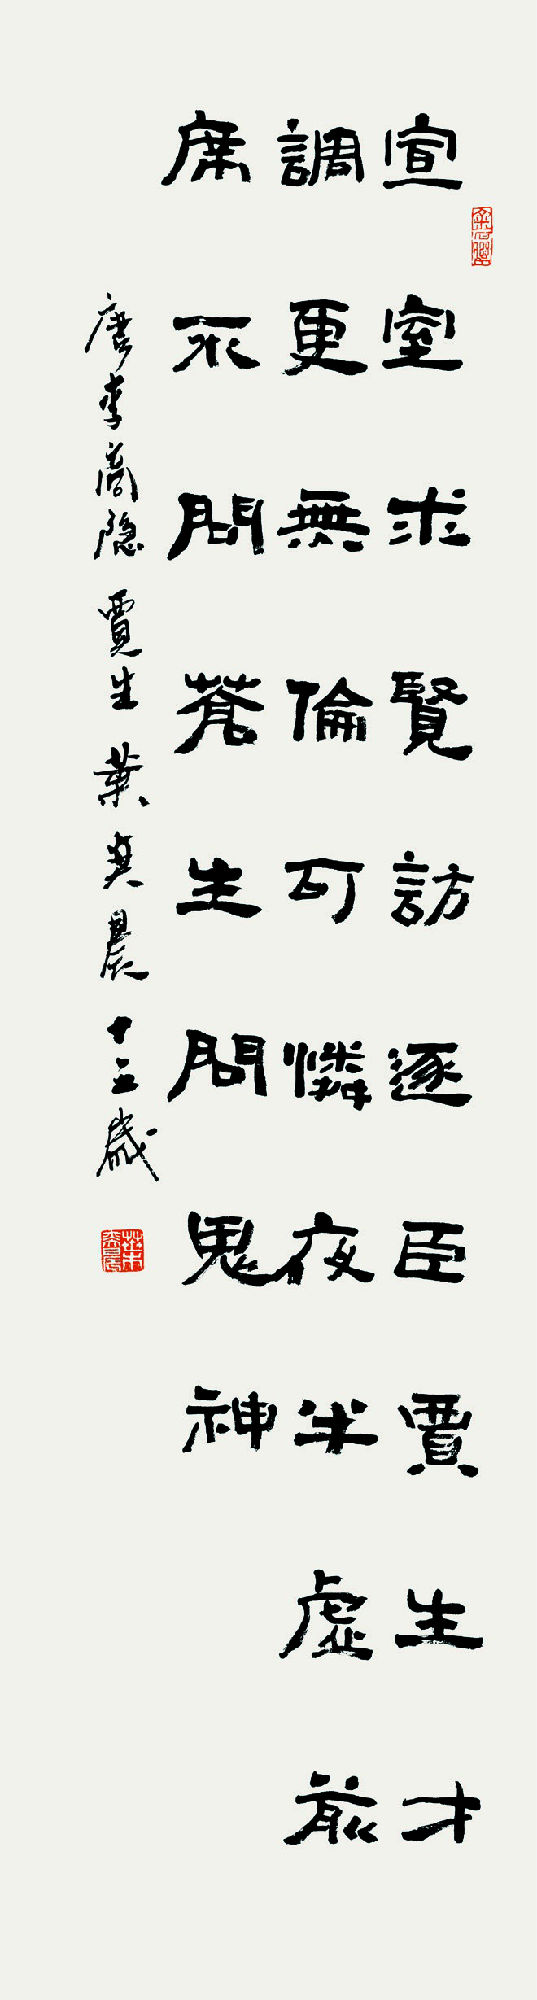 宣室求賢訪逐臣賈生才
調更無倫可憐夜半虛前
席不問蒼生問鬼神
唐李商隐賈生葉奕晨十五歲
葉奕晨